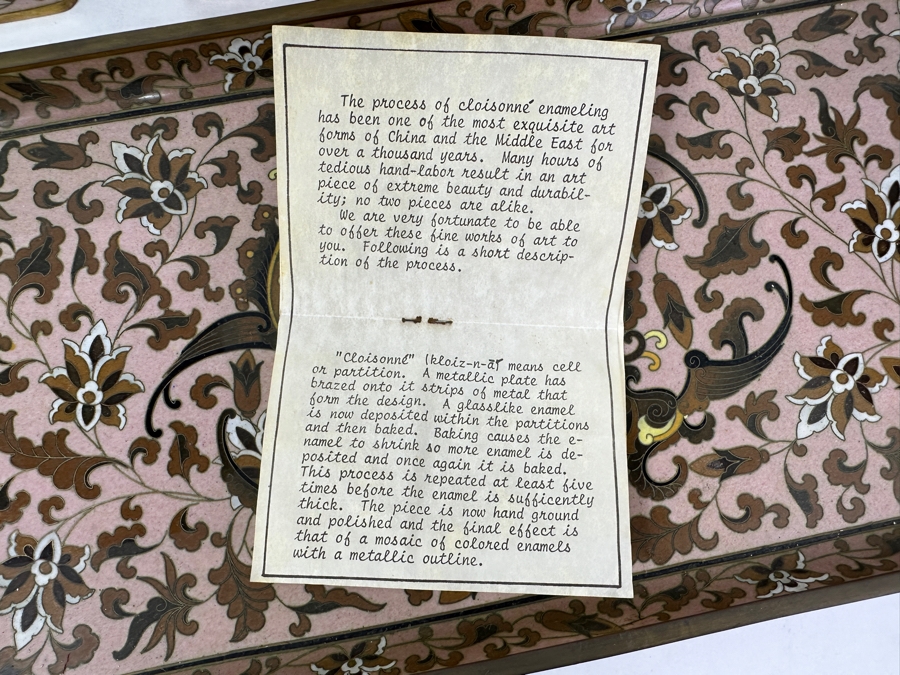 The process of cloisonné enameling
has been one of the most exquisite art
forms of China and the Middle East for
over a thousand years. Many hours of
tedious hand-labor result in an art
piece of extreme beauty and durabil-
ity; no two pieces are alike.
We are very fortunate to be able
to offer these fine works of art to
you. Following is a short descrip-
tion of the process.
"Cloisonné" (kloiz-n-ā) means cell
or partition. A metallic plate has
brazed onto it strips of metal that
form the design. A glasslike enamel
is now deposited within the partitions
and then baked. Baking causes the e-
namel to shrink so more enamel is de-
posited and once again it is baked.
This process is repeated at least five
times before the enamel is sufficently
thick. The piece is now hand ground
and polished and the final effect is
that of a mosaic of colored enamels
with a metallic outline.